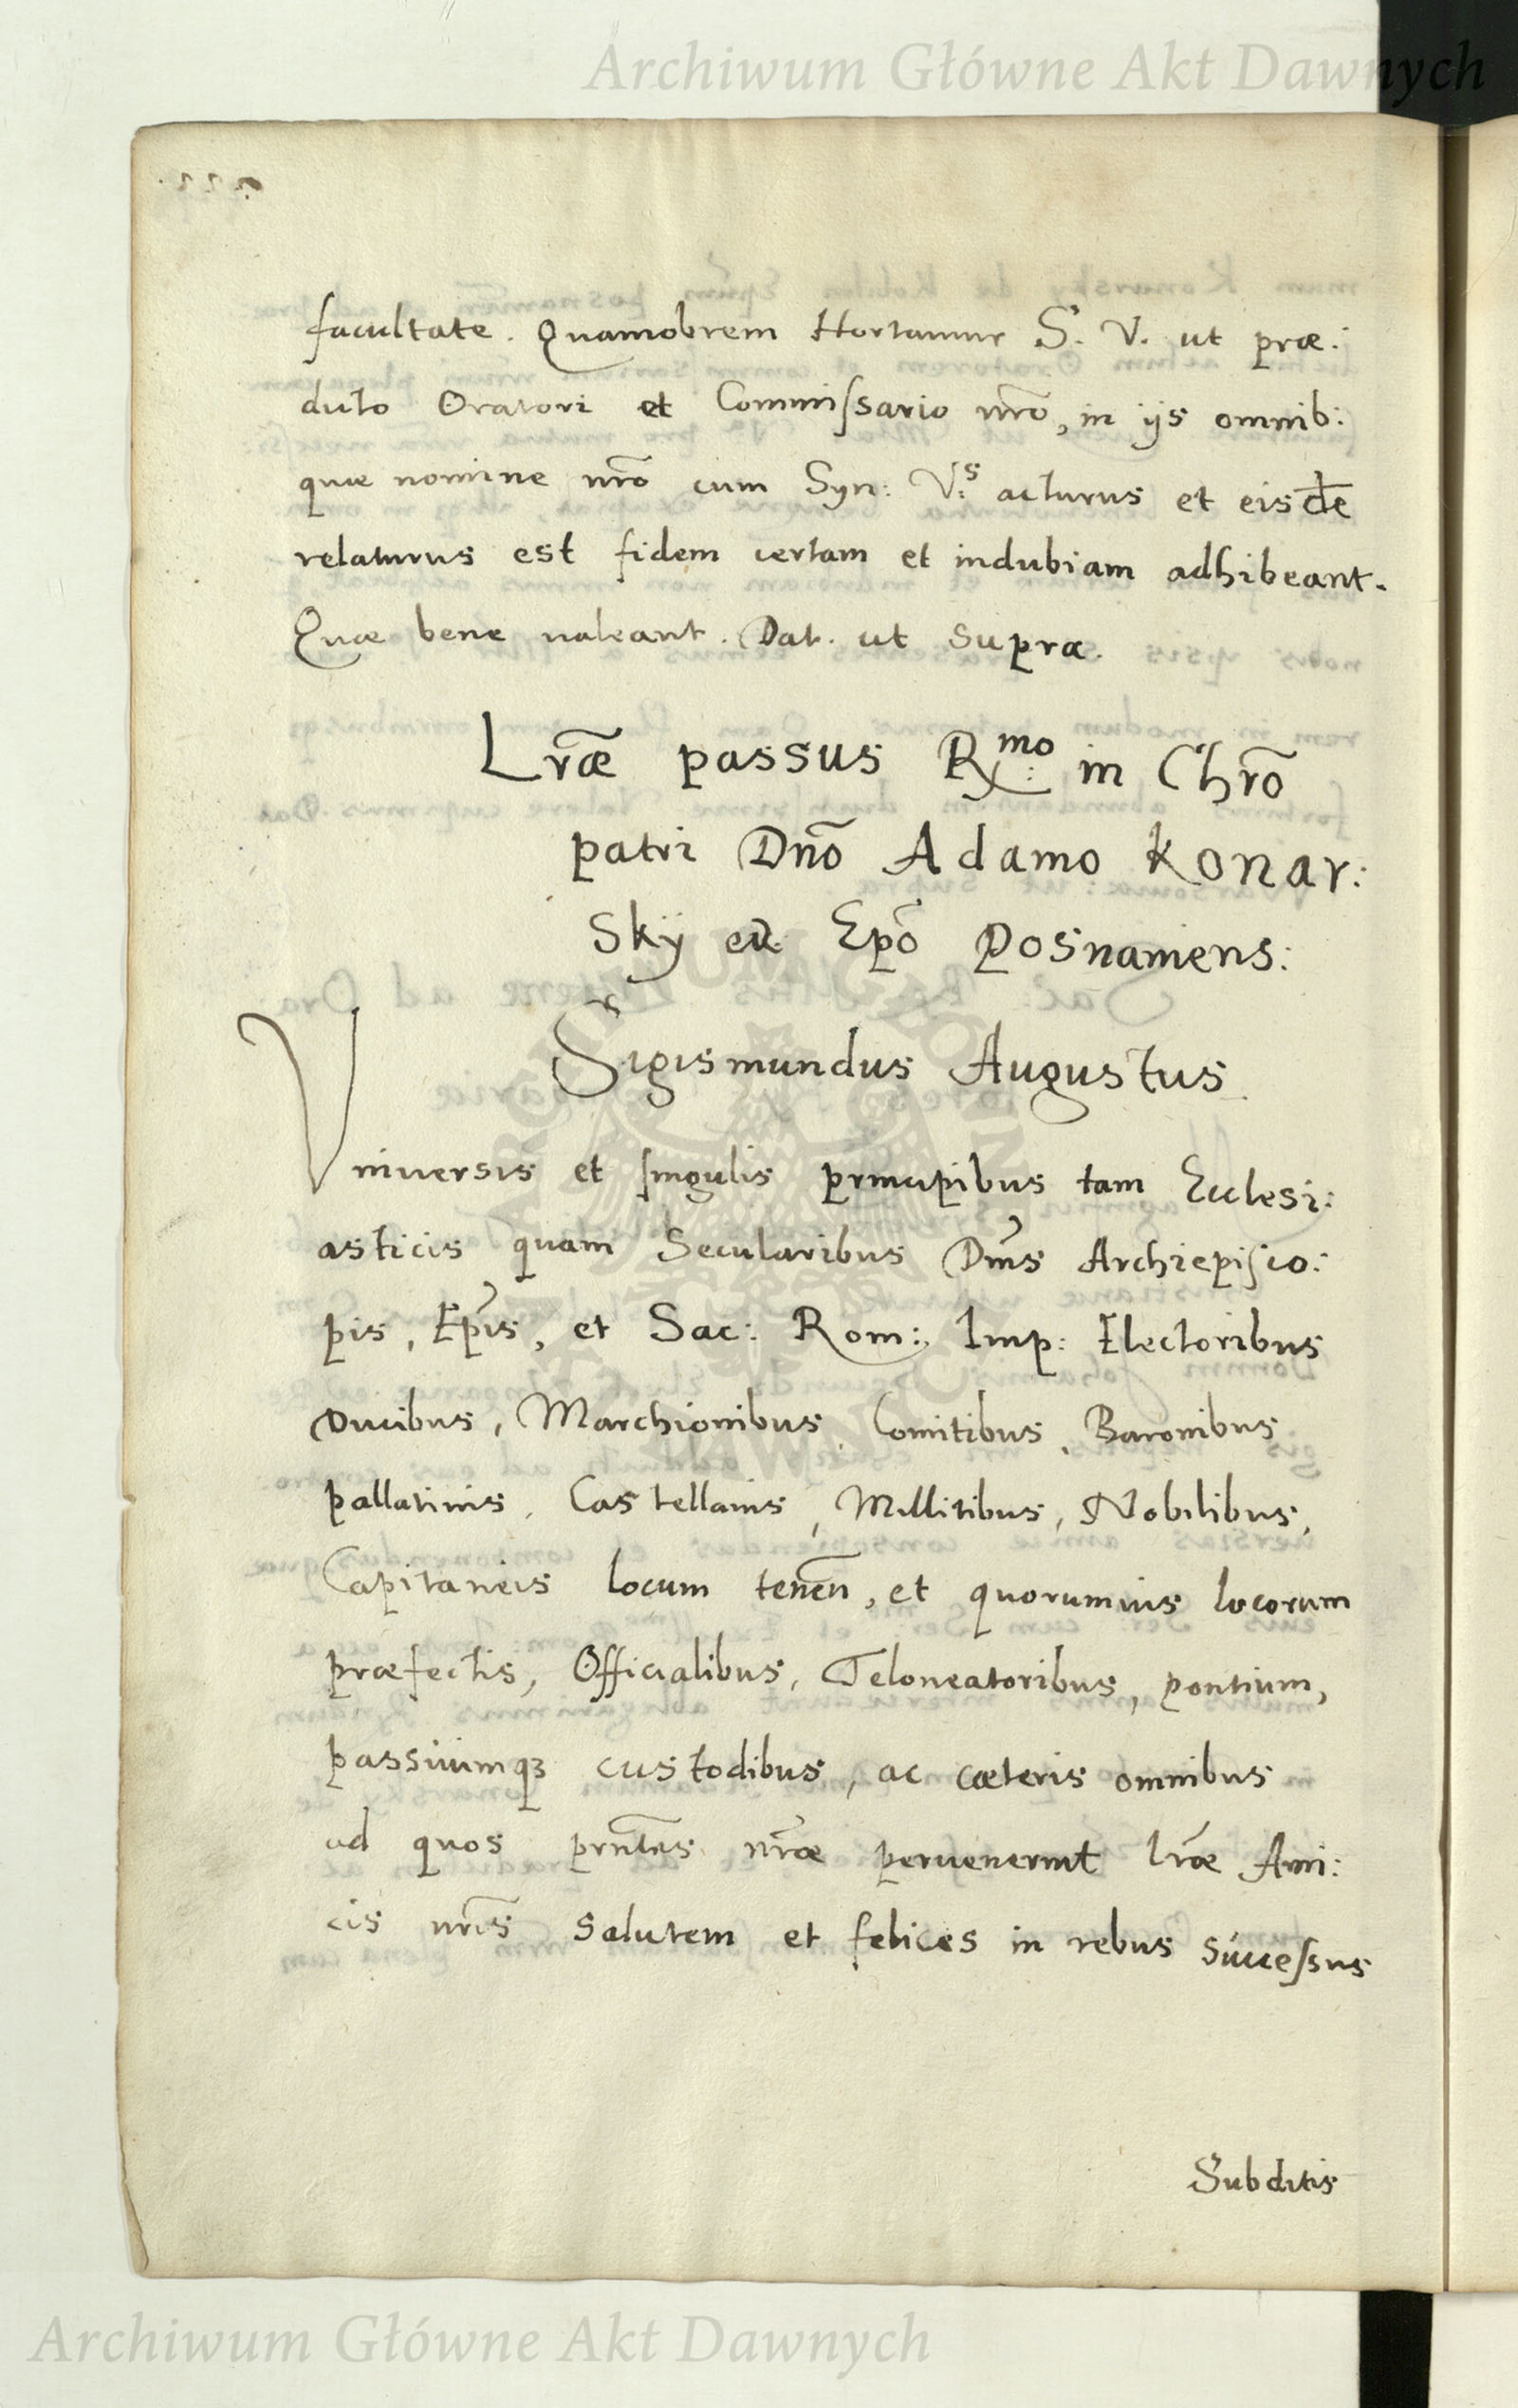 Archiwum Główne Akt Dawnych
facultate. Quamobrem Hortamur S. V. ut præ:
dicto Oratori et Commiſsario nr̃o, in ijs omnib:
quæ nomine nr̃o cum Syn: V:s acturus et eisdē
relaturus est fidem certam et indubiam adhibeant.
Quæ bene valeant. Dat. ut supra.
Lr̃æ passus Rmo: in Chr̃o
patri Dño Adamo Konar:
Skÿ Epõ Posnamens:
Sigismundus Augustus
Vniuersis et ſingulis principibus tam Ecclesi:
asticis quam Secularibus Dnis Archiepiſco:
pis, Epis, et Sac: Rom: Imp: Electoribus
Ducibus, Marchionibus, Comitibus, Baronibus
pallatinis, Castellanis, Millitibus, Nobilibus,
Capitaneis locum tenen̄, et quorumuis locorum
præfectis, Officialibus, Teloneatoribus, pontium,
passuumqꝫ custodibus, ac cæteris omnibus
ad quos prñtes nr̃æ peruenerint lr̃æ Ami:
cis nr̃is salutem et felices in rebus succeſsus
Subditis
Archiwum Główne Akt Dawnych